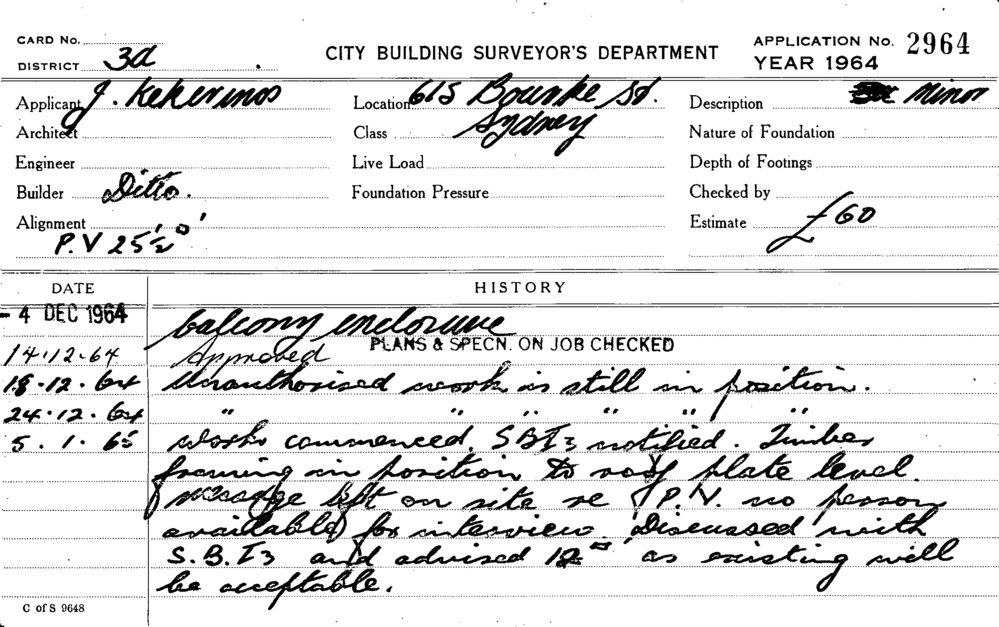 CARD No.
DISTRICT 3d
CITY BUILDING SURVEYOR'S DEPARTMENT
APPLICATION No. 2964
YEAR 1964
Applicant J. Kekerinos
Location 615 Bourke St.
Sydney
Description Minor
Architect
Class
Nature of Foundation
Engineer
Live Load
Depth of Footings
Builder Ditto.
Foundation Pressure
Checked by
Alignment
P.V 25½
Estimate £60
DATE
HISTORY
- 4 DEC 1964 balcony enclosure
14.12.64 Approved PLANS & SPECN. ON JOB CHECKED
18.12.64 Unauthorised work is still in position.
24.12.64 " " " " "
5.1.65 works commenced, SBI3 notified. Timber
framing in position to roof plate level.
message left on site re P.V. no person
available for interview. Discussed with
S.B.I3 and advised 12 as existing will
be acceptable.
C of S 9648